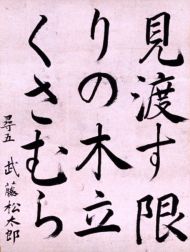 見渡す限
りの木立
くさむら
尋五 武藤松太郎